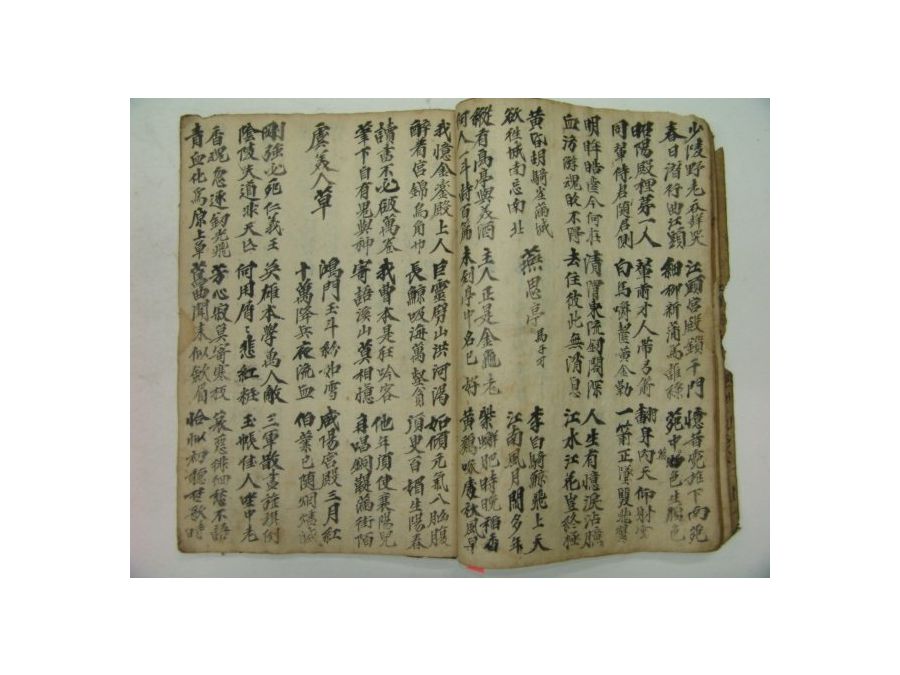 少陵野老吞聲哭
春日潛行曲江頭
江頭宮殿鎖千門
細柳新蒲為誰綠
憶昔霓旌下南苑
苑中物色生顏色
昭陽殿裡第一人
同輦侍君隨君側
輦前才人帶弓箭
白馬嚼齧黃金勒
翻身向天仰射雲
一箭正墜雙飛翼
明眸皓齒今何在
血污游魂歸不得
清渭東流劍閣深
去住彼此無消息
人生有憶淚沾臆
江水江花豈終極
黃昏胡騎塵滿城
欲往城南忘南北
燕思亭 馬子才
李白騎鯨飛上天
江南風月閑多年
縱有高亭與美酒
何人一斗詩百篇
主人正是金龜老
未到亭中名已好
紫蟹肥時晚稻香
黃鷄啄處秋風早
我憶金鑾殿上人
醉着宮錦烏角巾
巨靈劈山洪河渴
長鯨吸海萬壑貧
如傾元氣入胸腹
須臾百媚生陽春
讀書不必破萬卷
筆下自有鬼與神
我曹本是狂吟客
寄語溪山莫相憶
他年須使襄陽兒
再唱銅鞮滿街陌
虞美人草
鴻門玉斗紛如雪
十萬降兵夜流血
咸陽宮殿三月紅
伯業已隨烟燼滅
剛強必死仁義王
陰陵失道非天亡
英雄本學萬人敵
何用屑屑悲紅粧
三軍散盡旌旗倒
玉帳佳人坐中老
香魂忽逐釰光飛
青血化為原上草
芳心寂莫寄寒枝
舊曲聞來似斂眉
哀怨徘徊愁不語
恰似初聽楚歌時